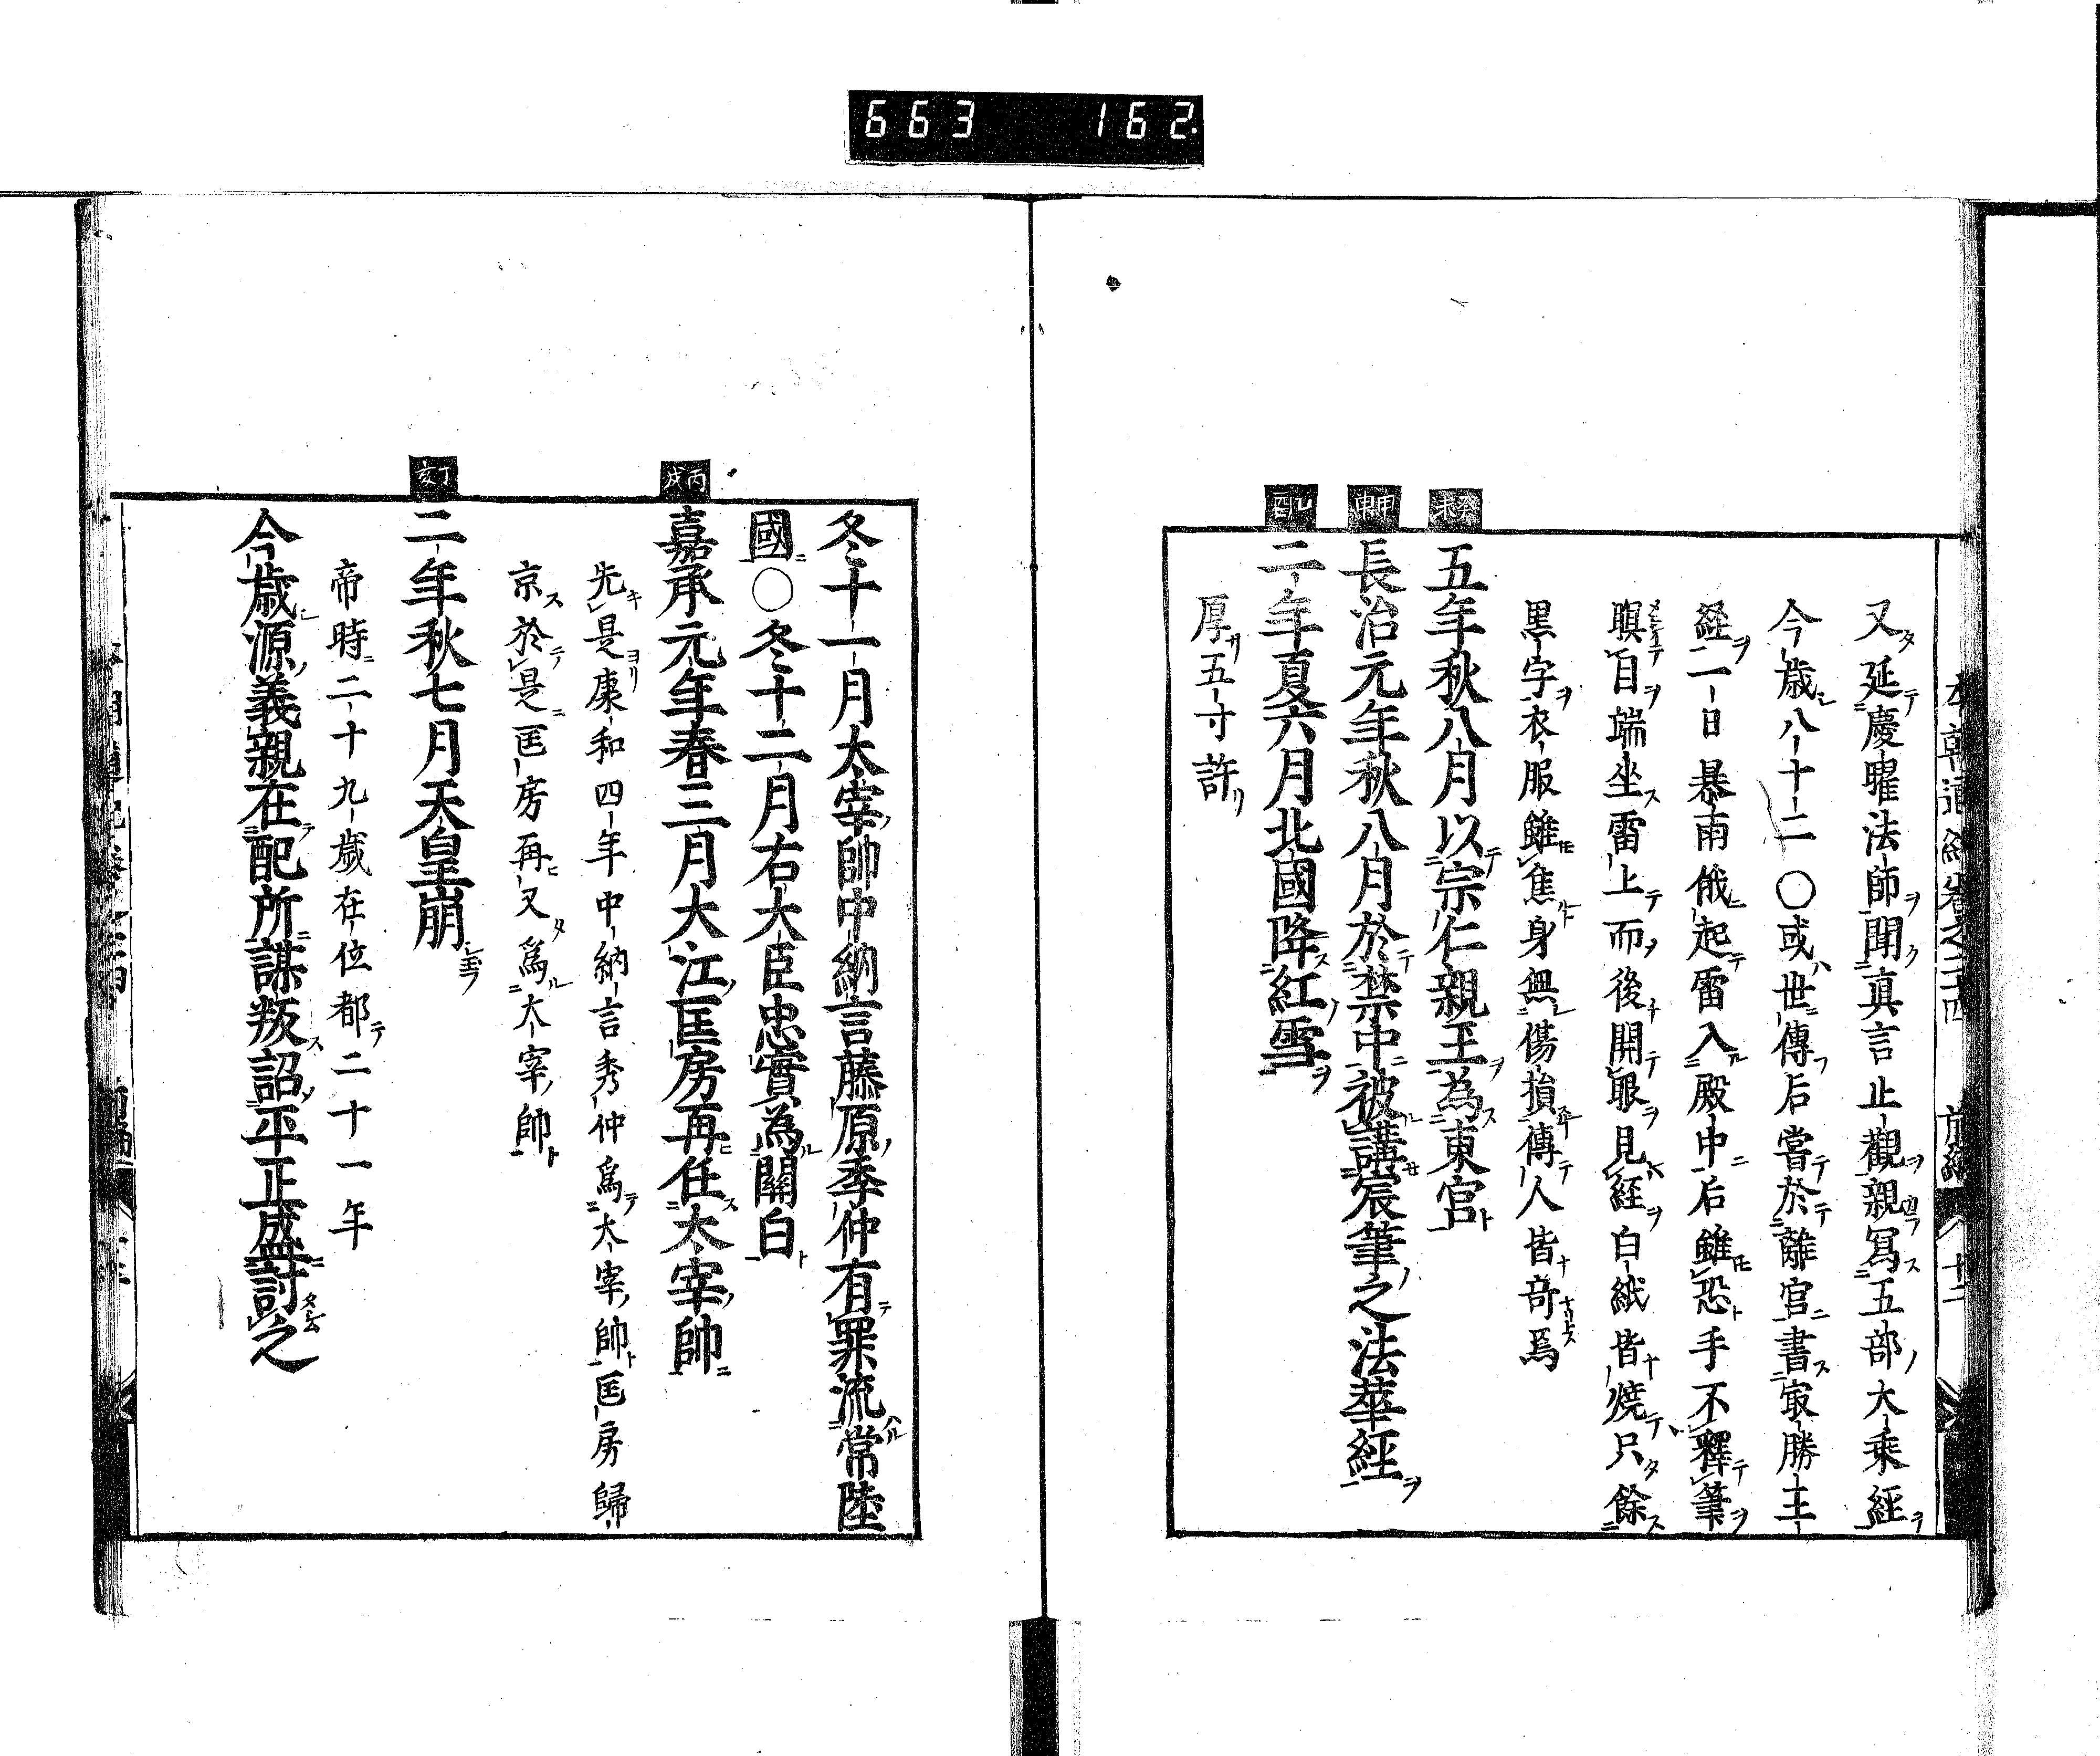 663 162
又延慶曜法師聞真言止觀親寫五部大乘經
今歲八十二〇或世傳后嘗於離宮書最勝王
經一日暴雨俄起雷入殿中后雖恐手不釋筆
瞑目端坐雷上而後開眼見経白紙皆燒只餘
黒字衣服雖焦身無傷損傳人皆奇焉
癸未
五年秋八月以宗仁親王為東宮
甲申
長治元年秋八月於禁中被講宸筆之法華經
乙酉
二年夏六月北國降紅雪
厚五寸許
冬十一月太宰帥中納言藤原季仲有罪流常陸
國〇冬十二月右大臣忠實為關白
丙戌
嘉承元年春三月大江匡房再任太宰帥
先是康和四年中納言秀仲爲太宰帥匡房歸
京於是匡房再又爲太宰帥
丁亥
二年秋七月天皇崩
帝時二十九歲在位都二十一年
今歲源義親在配所謀叛詔平正盛討之